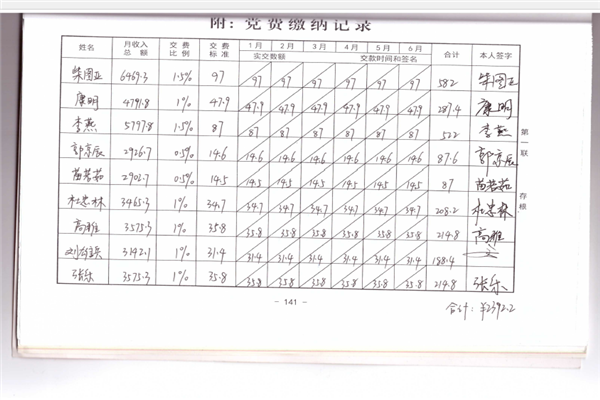 附：党费缴纳记录
姓名 月收入总额 交费比例 交费标准 1月 2月 3月 4月 5月 6月 合计 本人签字
实交数额 交款时间和签名
柴国正 6469.3 1.5% 97 97 97 97 97 97 97 582 柴国正
康明 4791.8 1% 47.9 47.9 47.9 47.9 47.9 47.9 47.9 287.4 康明
李燕 5797.8 1.5% 87 87 87 87 87 87 87 522 李燕
郭京辰 2926.7 0.5% 14.6 14.6 14.6 14.6 14.6 14.6 14.6 87.6 郭京辰
苗若茹 2902.7 0.5% 14.5 14.5 14.5 14.5 14.5 14.5 14.5 87 苗若茹
杜忠林 3465.3 1% 34.7 34.7 34.7 34.7 34.7 34.7 34.7 208.2 杜忠林
高雅 3575.3 1% 35.8 35.8 35.8 35.8 35.8 35.8 35.8 214.8 高雅
3142.1 1% 31.4 31.4 31.4 31.4 31.4 31.4 31.4 188.4
张乐 3575.3 1% 35.8 35.8 35.8 35.8 35.8 35.8 35.8 214.8 张乐
第一联 存根
- 141 -
合计：¥2392.2